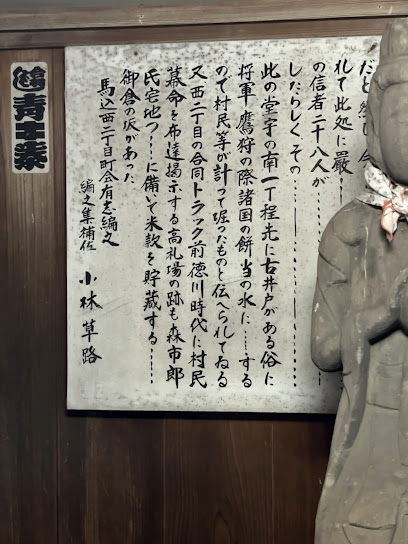 だと然し今
れて此処に嚴
の信者二十八人が………
したらしく、その………
此の堂宇の南一丁程先に古井戸がある俗に
将軍、鷹狩の際諸国の餅当の水に……する
ので村民等が計って堀ったものと伝へられてゐる
又、西二丁目の合同トラック前徳川時代に村民
幕命を布達掲示する高札場の跡も森市郎
氏宅地つ……に備いて米穀を貯蔵する……
御倉の坂があった
馬込西二丁目町会有志編之
編之集補佐 小林草路